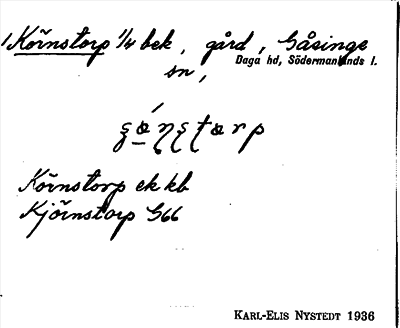 1 Körnstorp 1/4 bek, gård, Gåsinge
Daga hd, Södermanlands l.
sn,
Körnstorp ek kb
Kjörnstorp G66
KARL-ELIS NYSTEDT 1936